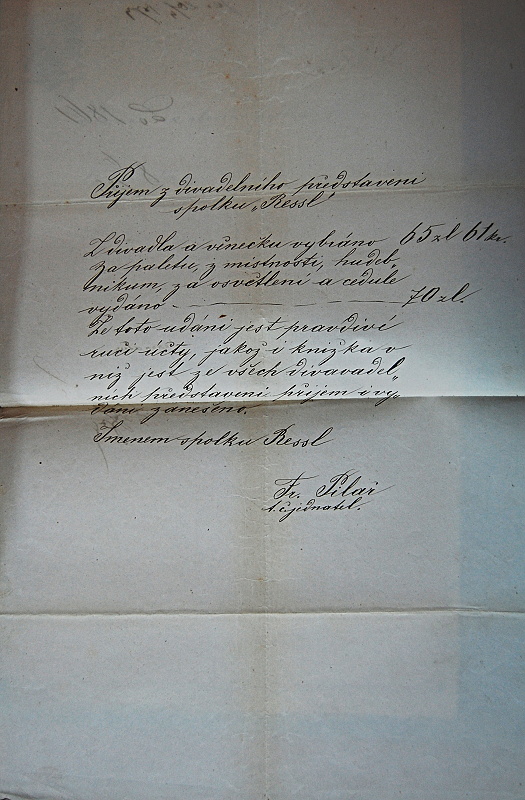 Příjem z divadelního představení
spolku „Ressl"
Z divadla a věnečku vybráno 65 zl 61 kr.
Za paletu, z místnosti, hudeb„
níkum, za osvětlení a cedule
vydáno — — — — — — 70 zl.
Že toto udání jest pravdivé
ručí účty, jakož i knížka v
níž jest ze všech divavadel„
ních představení příjem i vy„
dání zanešeno.
Jmenem spolku Ressl
Fr. Pilař
t. č. jednatel.